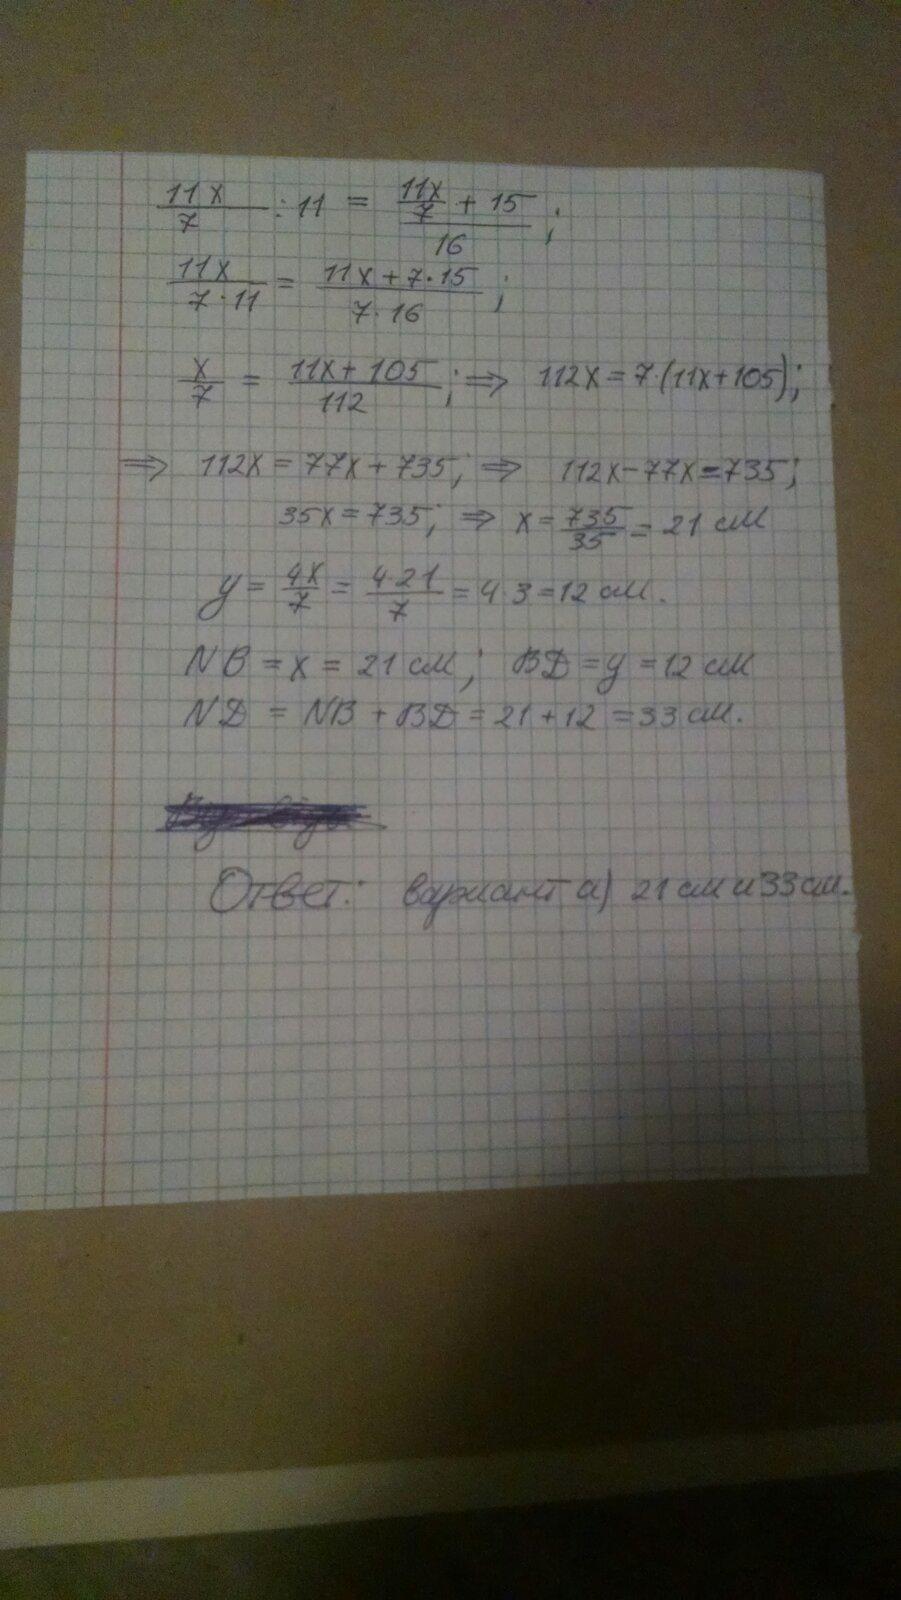 11x/7 : 11 = (11x/7 + 15)/16;
11x/(7·11) = (11x+7·15)/(7·16);
x/7 = (11x+105)/112; ⇒ 112x = 7·(11x+105);
⇒ 112x = 77x + 735; ⇒ 112x-77x=735;
35x = 735; ⇒ x = 735/35 = 21 см
y = 4x/7 = 4·21/7 = 4·3 = 12 см.
NB = x = 21 см; BD = y = 12 см
ND = NB + BD = 21 + 12 = 33 см.
Ответ: вариант а) 21 см и 33 см.